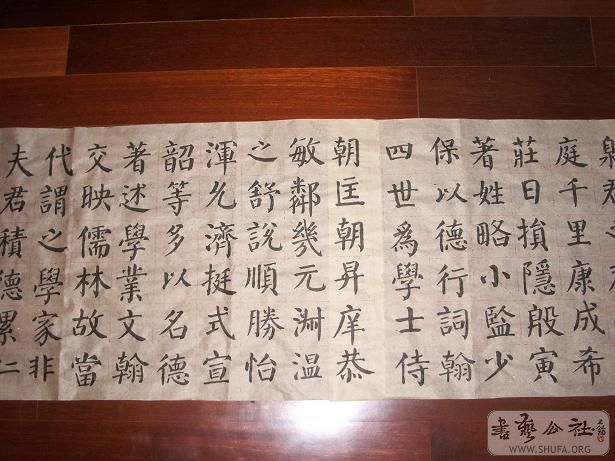 庭千里康成希
莊日損隱殷寅
著姓略小監少
保以德行詞翰
四世爲學士侍
朝匡朝昇庠恭
敏鄰幾元淵温
之舒說順勝怡
渾允濟挺式宣
韶等多以名德
著述學業文翰
交映儒林故當
代謂之學家非
夫君積德累仁
書藝公社
WWW.SHUFA.ORG